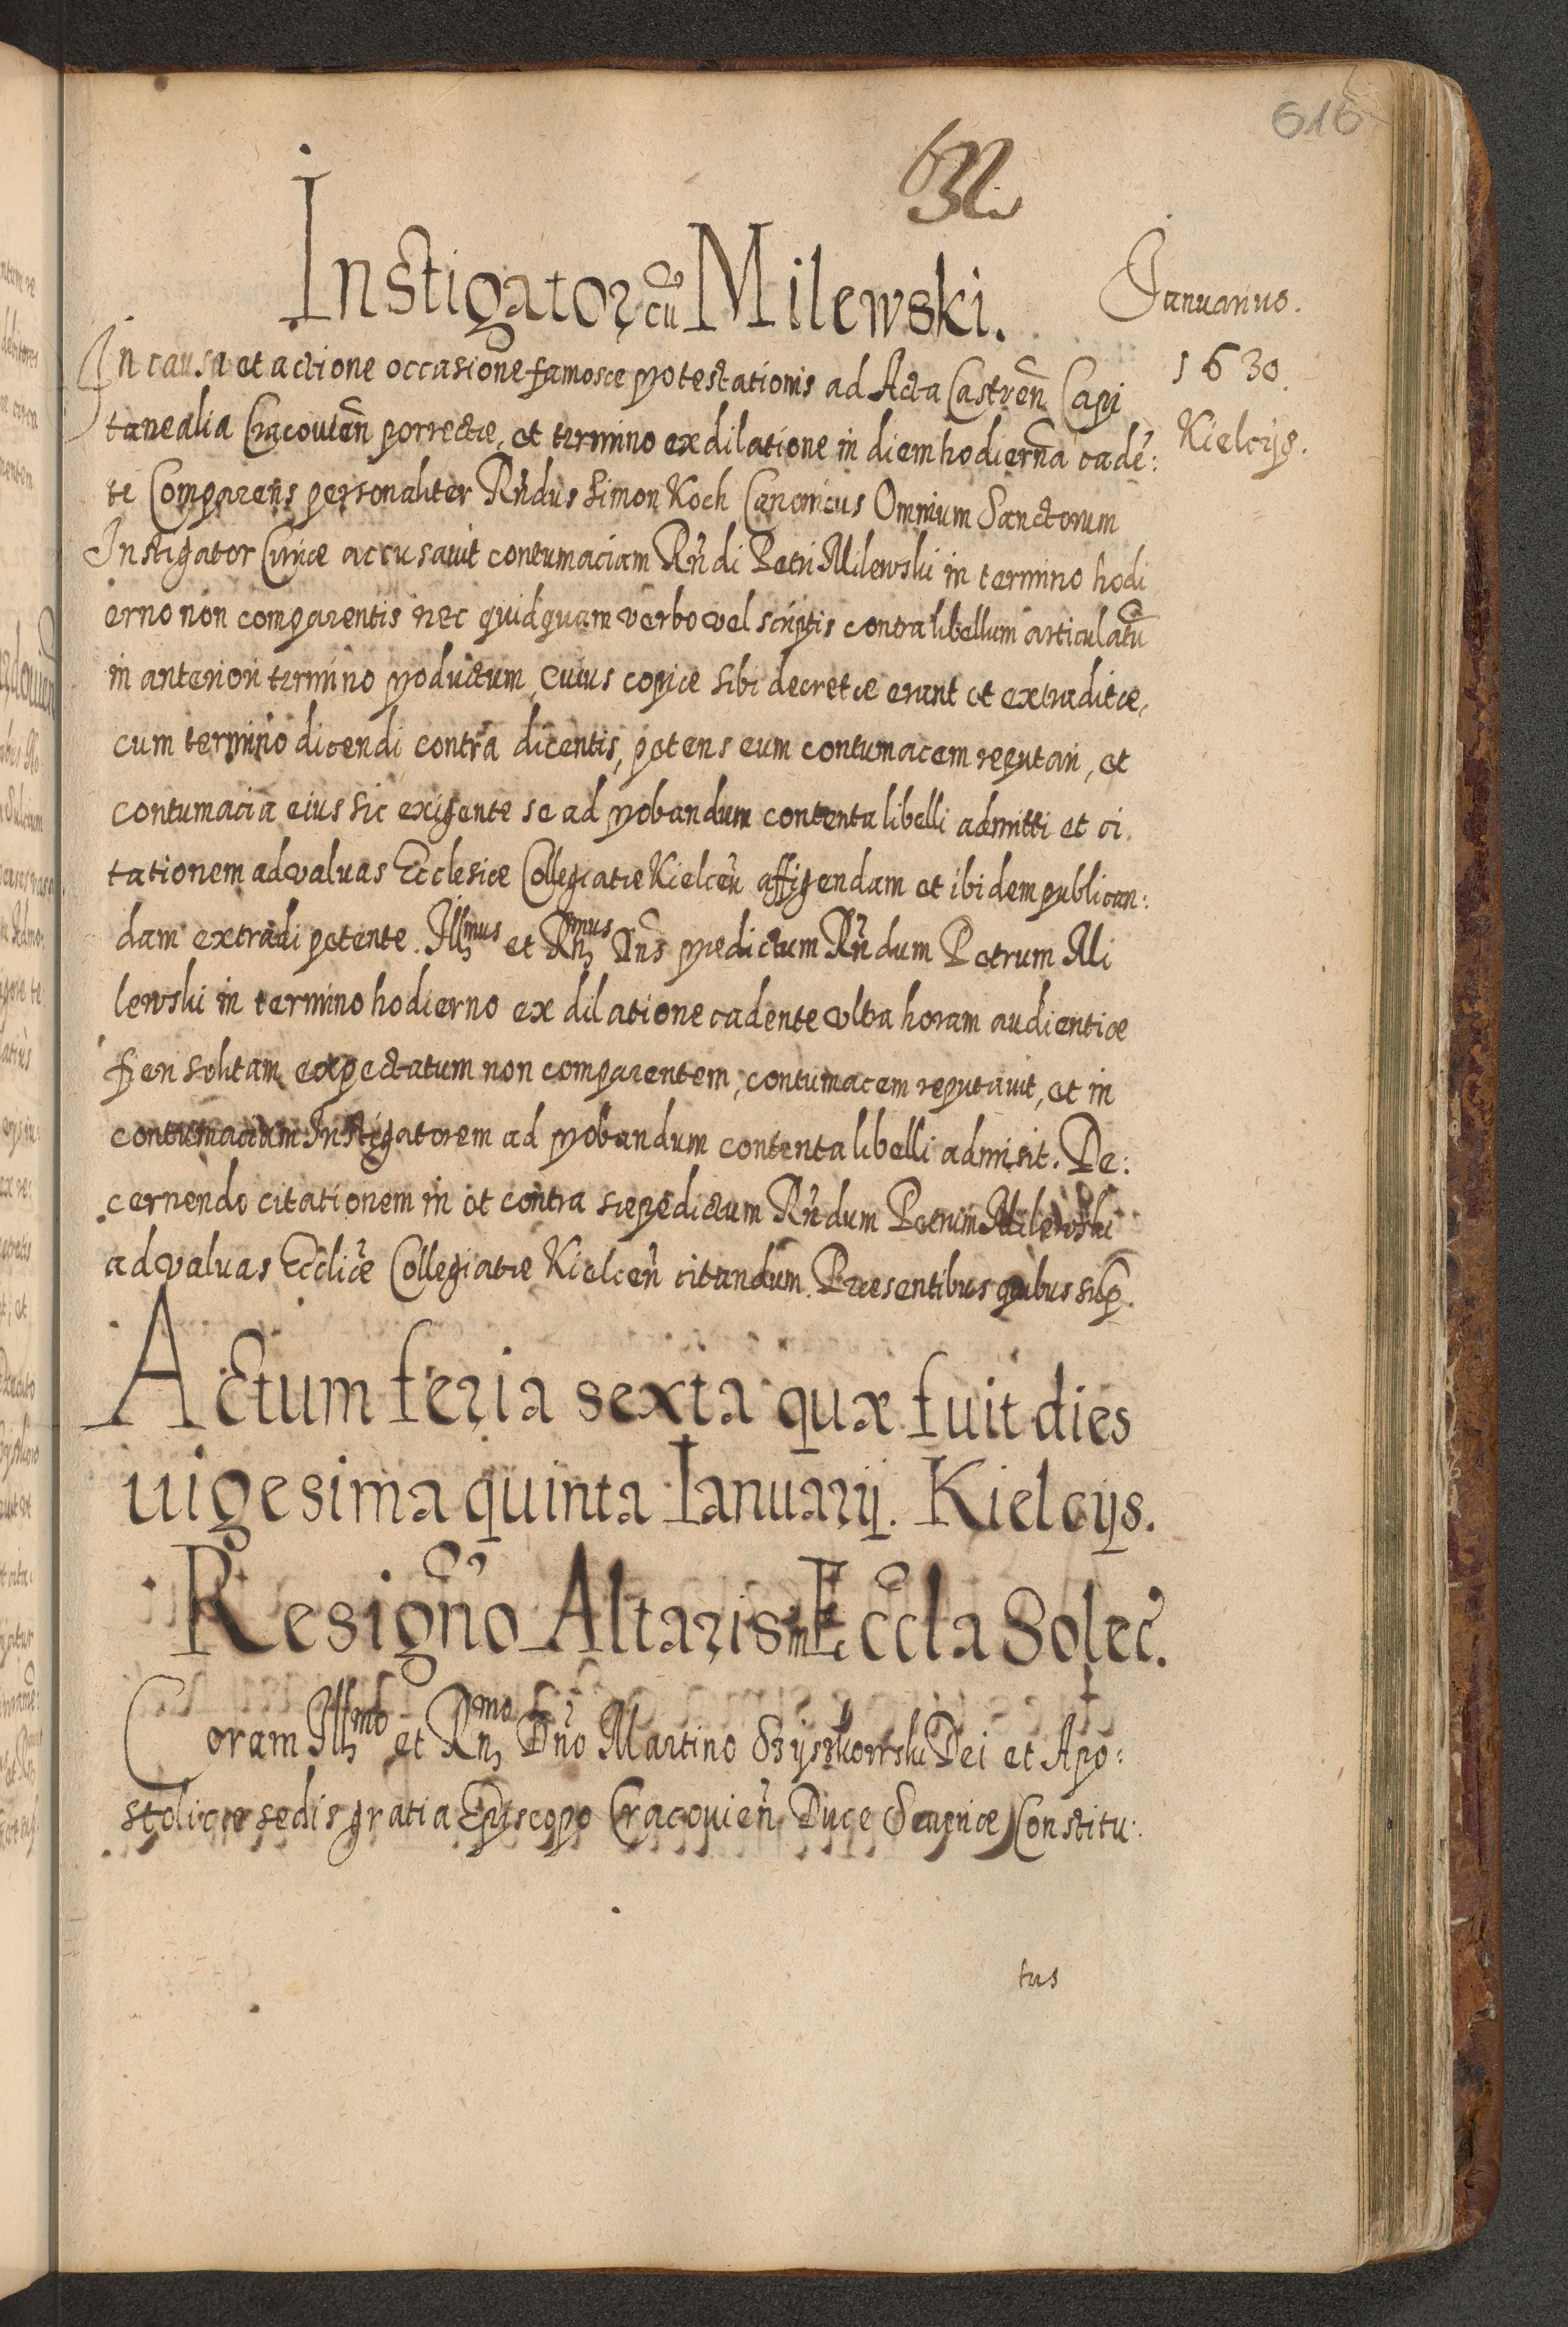 616
Instigator cū Milewski.
Januarius.
1630.
Kielcijs.
In causa et actione occasione famosæ protestationis ad Acta Castren̄ Capi
tanealia Cracouien̄ porrectæ, et termino ex dilatione in diem hodiernā cadē:
te Comparens personaliter Rn̄dus Simon Koch Canonicus Omnium Sanctorum
Instigator Curiæ accusauit contumaciam Rn̄di Petri Milewski in termino hodi
erno non comparentis nec quidquam verbo vel scriptis contra libellum articulatū
in anteriori termino productum, cuius copiæ sibi decretæ erant et extraditæ,
cum termino dicendi contra dicentis, petens eum contumacem reputari, et
contumacia eius sic exigente se ad probandum contenta libelli admitti et ci.
tationem ad valuas Ecclesiæ Collegiatæ Kielcen̄ affigendam et ibidem publican:
dam extradi petente. Illmus et Rmus Dn̄s prædictum Rn̄dum Petrum Mi
lewski in termino hodierno ex dilatione cadente vltra horam audientiæ
fieri solitam expectatum non comparentem, contumacem reputauit, et in
contumaciam Instigatorem ad probandum contenta libelli admisit. De:
cernendo citationem in et contra sæpedictum Rn̄dum Petrum Milewski
ad valuas Ecclīæ Collegiatæ Kielcen̄ citandum. Præsentibus quibus sup̄.
Actum feria sexta quæ fuit dies
uigesima quinta Ianuarij. Kielcijs.
Resign̄o Altaris in Eccla Solec̄.
Coram Illmo et Rmo Dn̄o Martino Szyszkowski Dei et Apo:
stolicæ sedis gratia Episcopo Cracouien̄ Duce Seueriæ Constitu:
tus